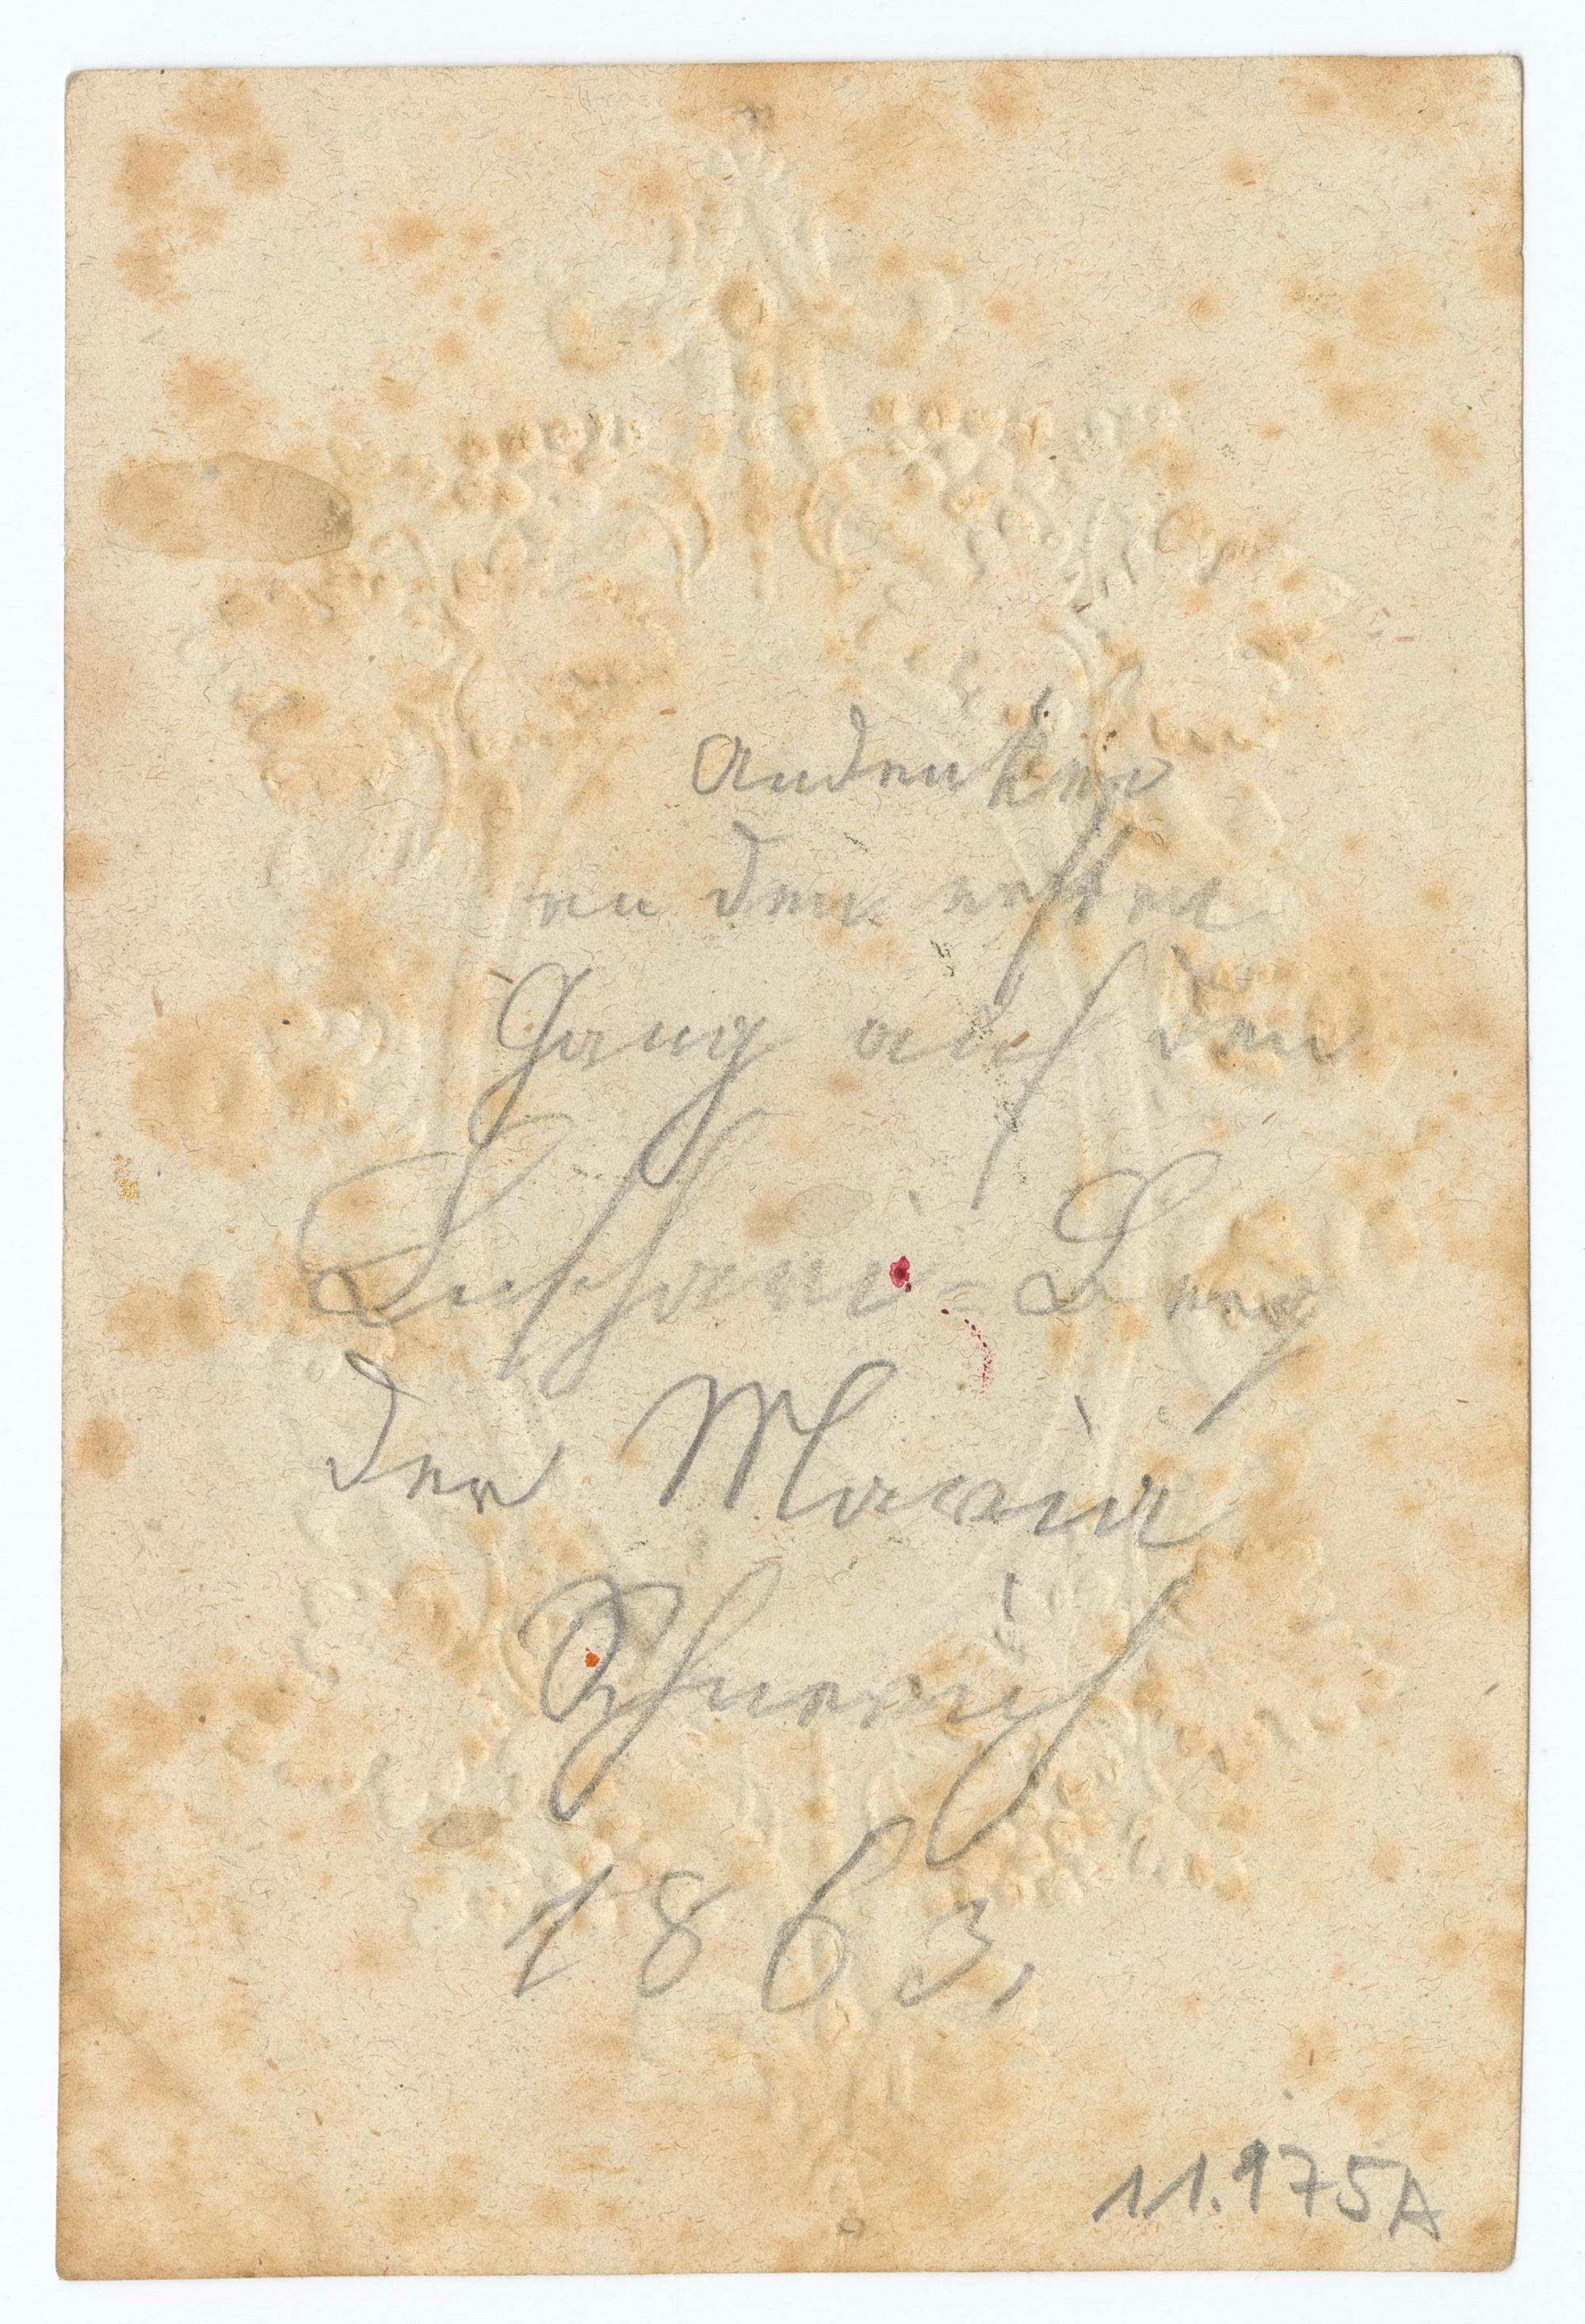 Andenken
an den ersten
Gang auf den
Luschari=Berg
der Maria
1863.
11.975A